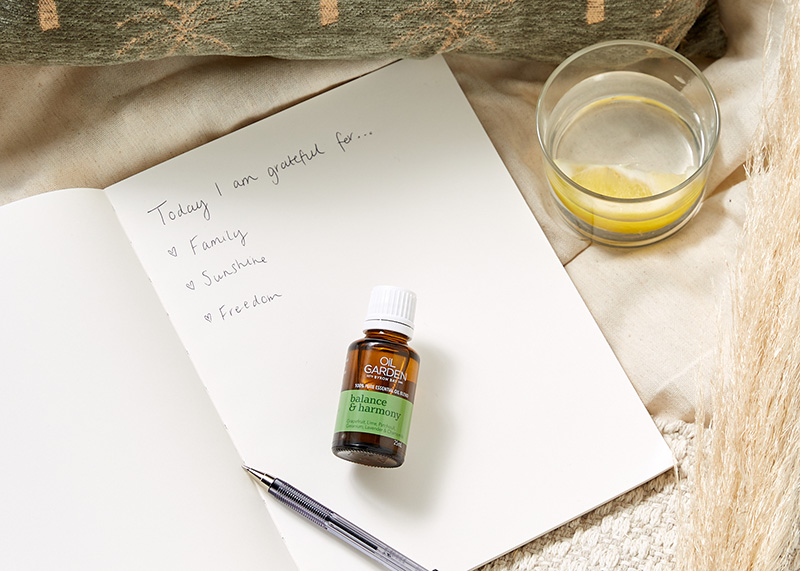 Today I am grateful for...
♡ Family
♡ Sunshine
♡ Freedom
OiL
GARDEN
BYRON BAY
100% PURE ESSENTIAL OIL BLEND
balance
& harmony
Grapefruit, Lime, Patchouli,
25mL